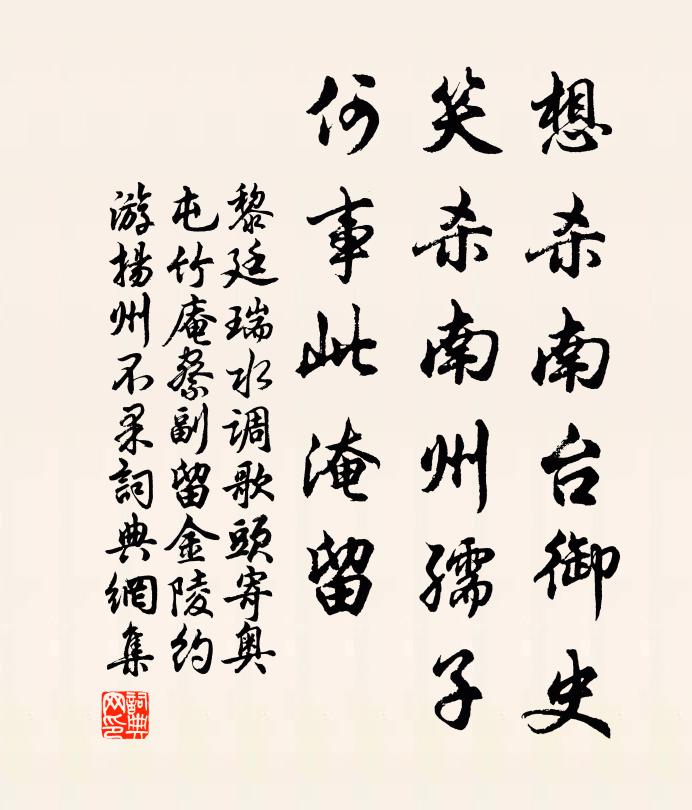 想杀南台御史
笑杀南州孺子
何事此淹留
黎廷瑞水调歌頭寄奥
屯竹庵察副留金陵约
游揚州不果詞典網集
詞典
网印